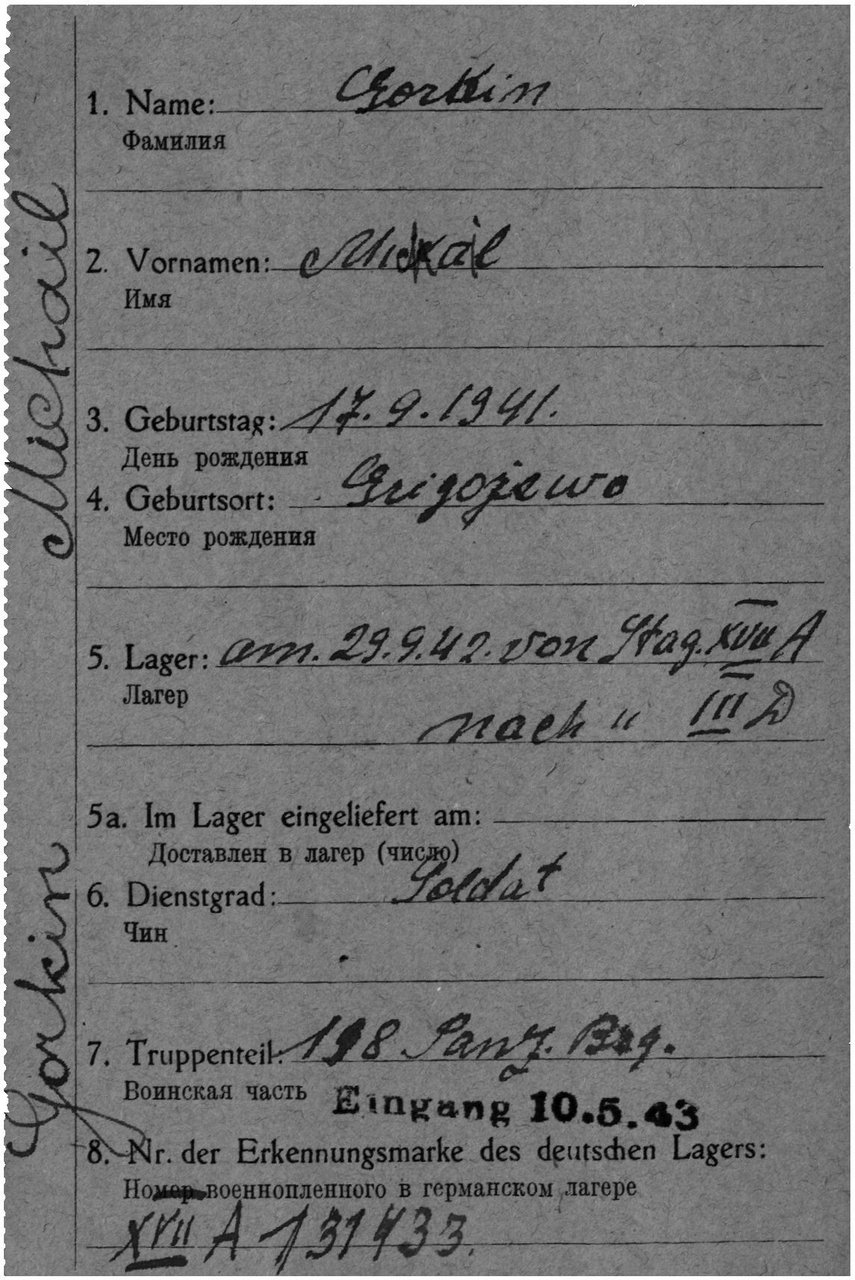 1. Name: Gorkin
Фамилия
2. Vornamen: Michail
Имя
3. Geburtstag: 17.9.1941.
День рождения
4. Geburtsort: Grigojewo
Место рождения
5. Lager: am. 29.9.42. von Stag. XVII A
Лагер
nach " III D
5a. Im Lager eingeliefert am:
Доставлен в лагер (число)
6. Dienstgrad: Soldat
Чин
7. Truppenteil: 198 Panz. Brg.
Воинская часть
Eingang 10.5.43
8. Nr. der Erkennungsmarke des deutschen Lagers:
Номер военнопленного в германском лагере
XVII A 131433.
Gorkin Michail